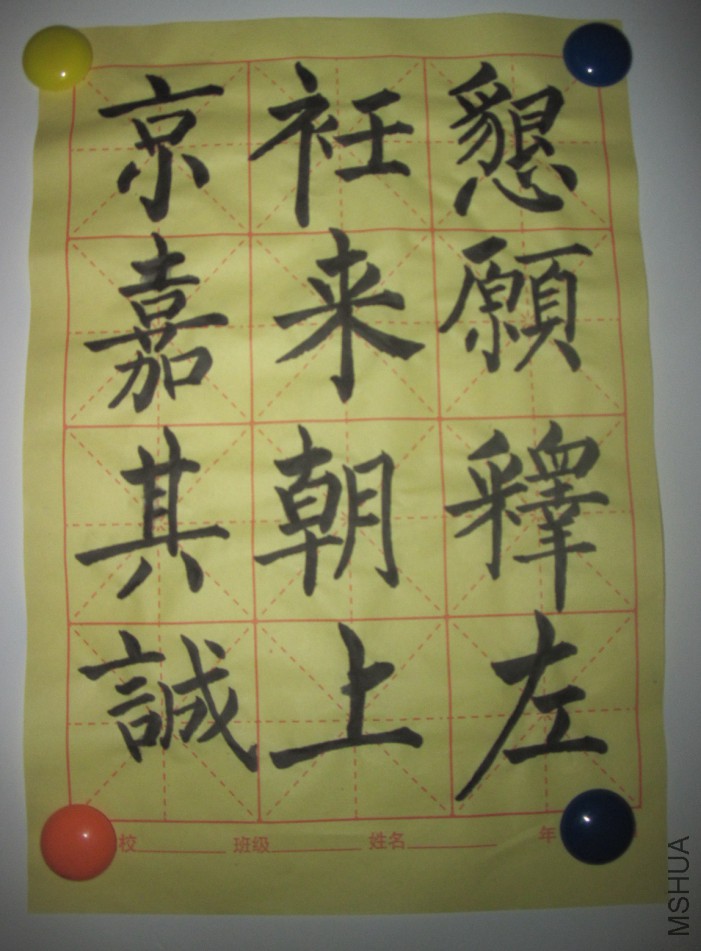 懇願釋左
衽来朝上
京嘉其誠
校 班级 姓名 年
MSHUA